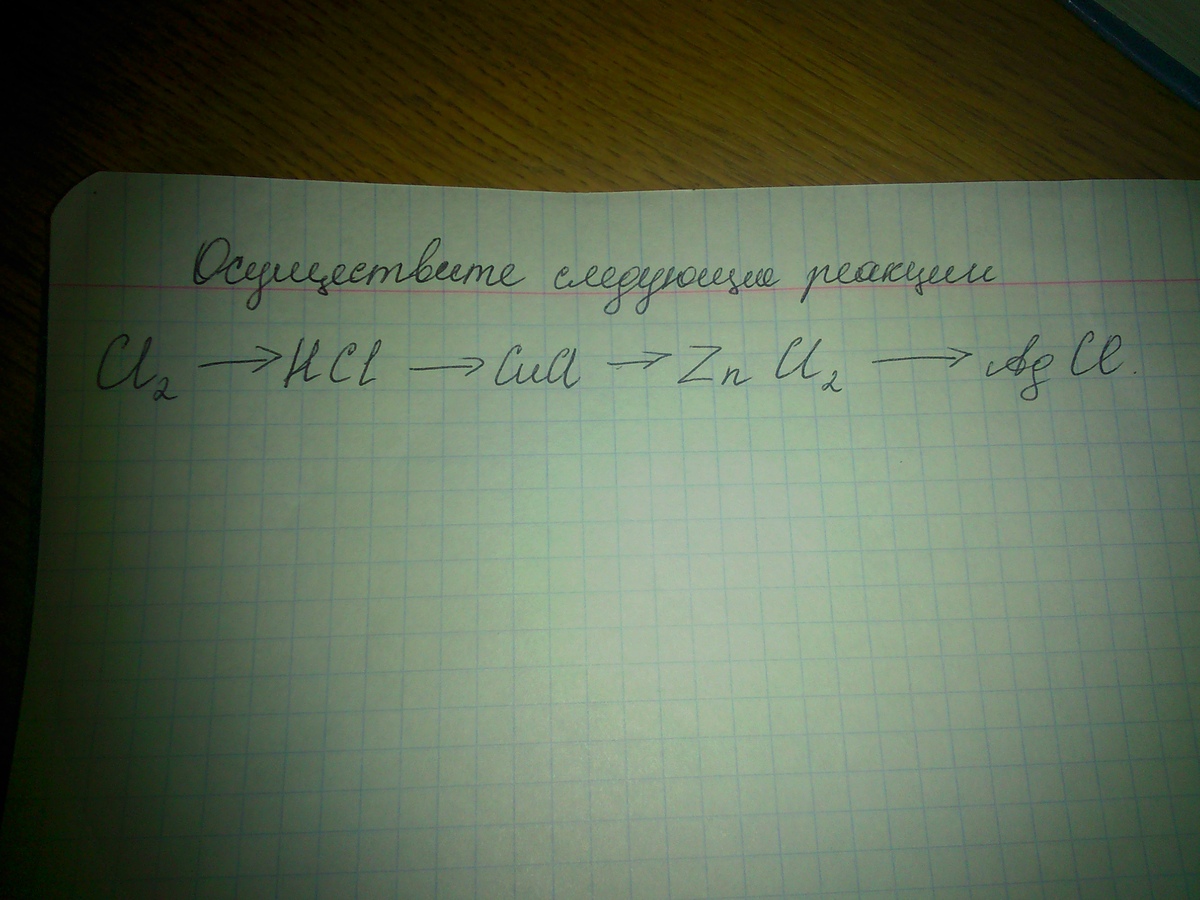 Осуществите следующие реакции
Cl₂ → HCl → CuCl → Zn Cl₂ → Ag Cl.